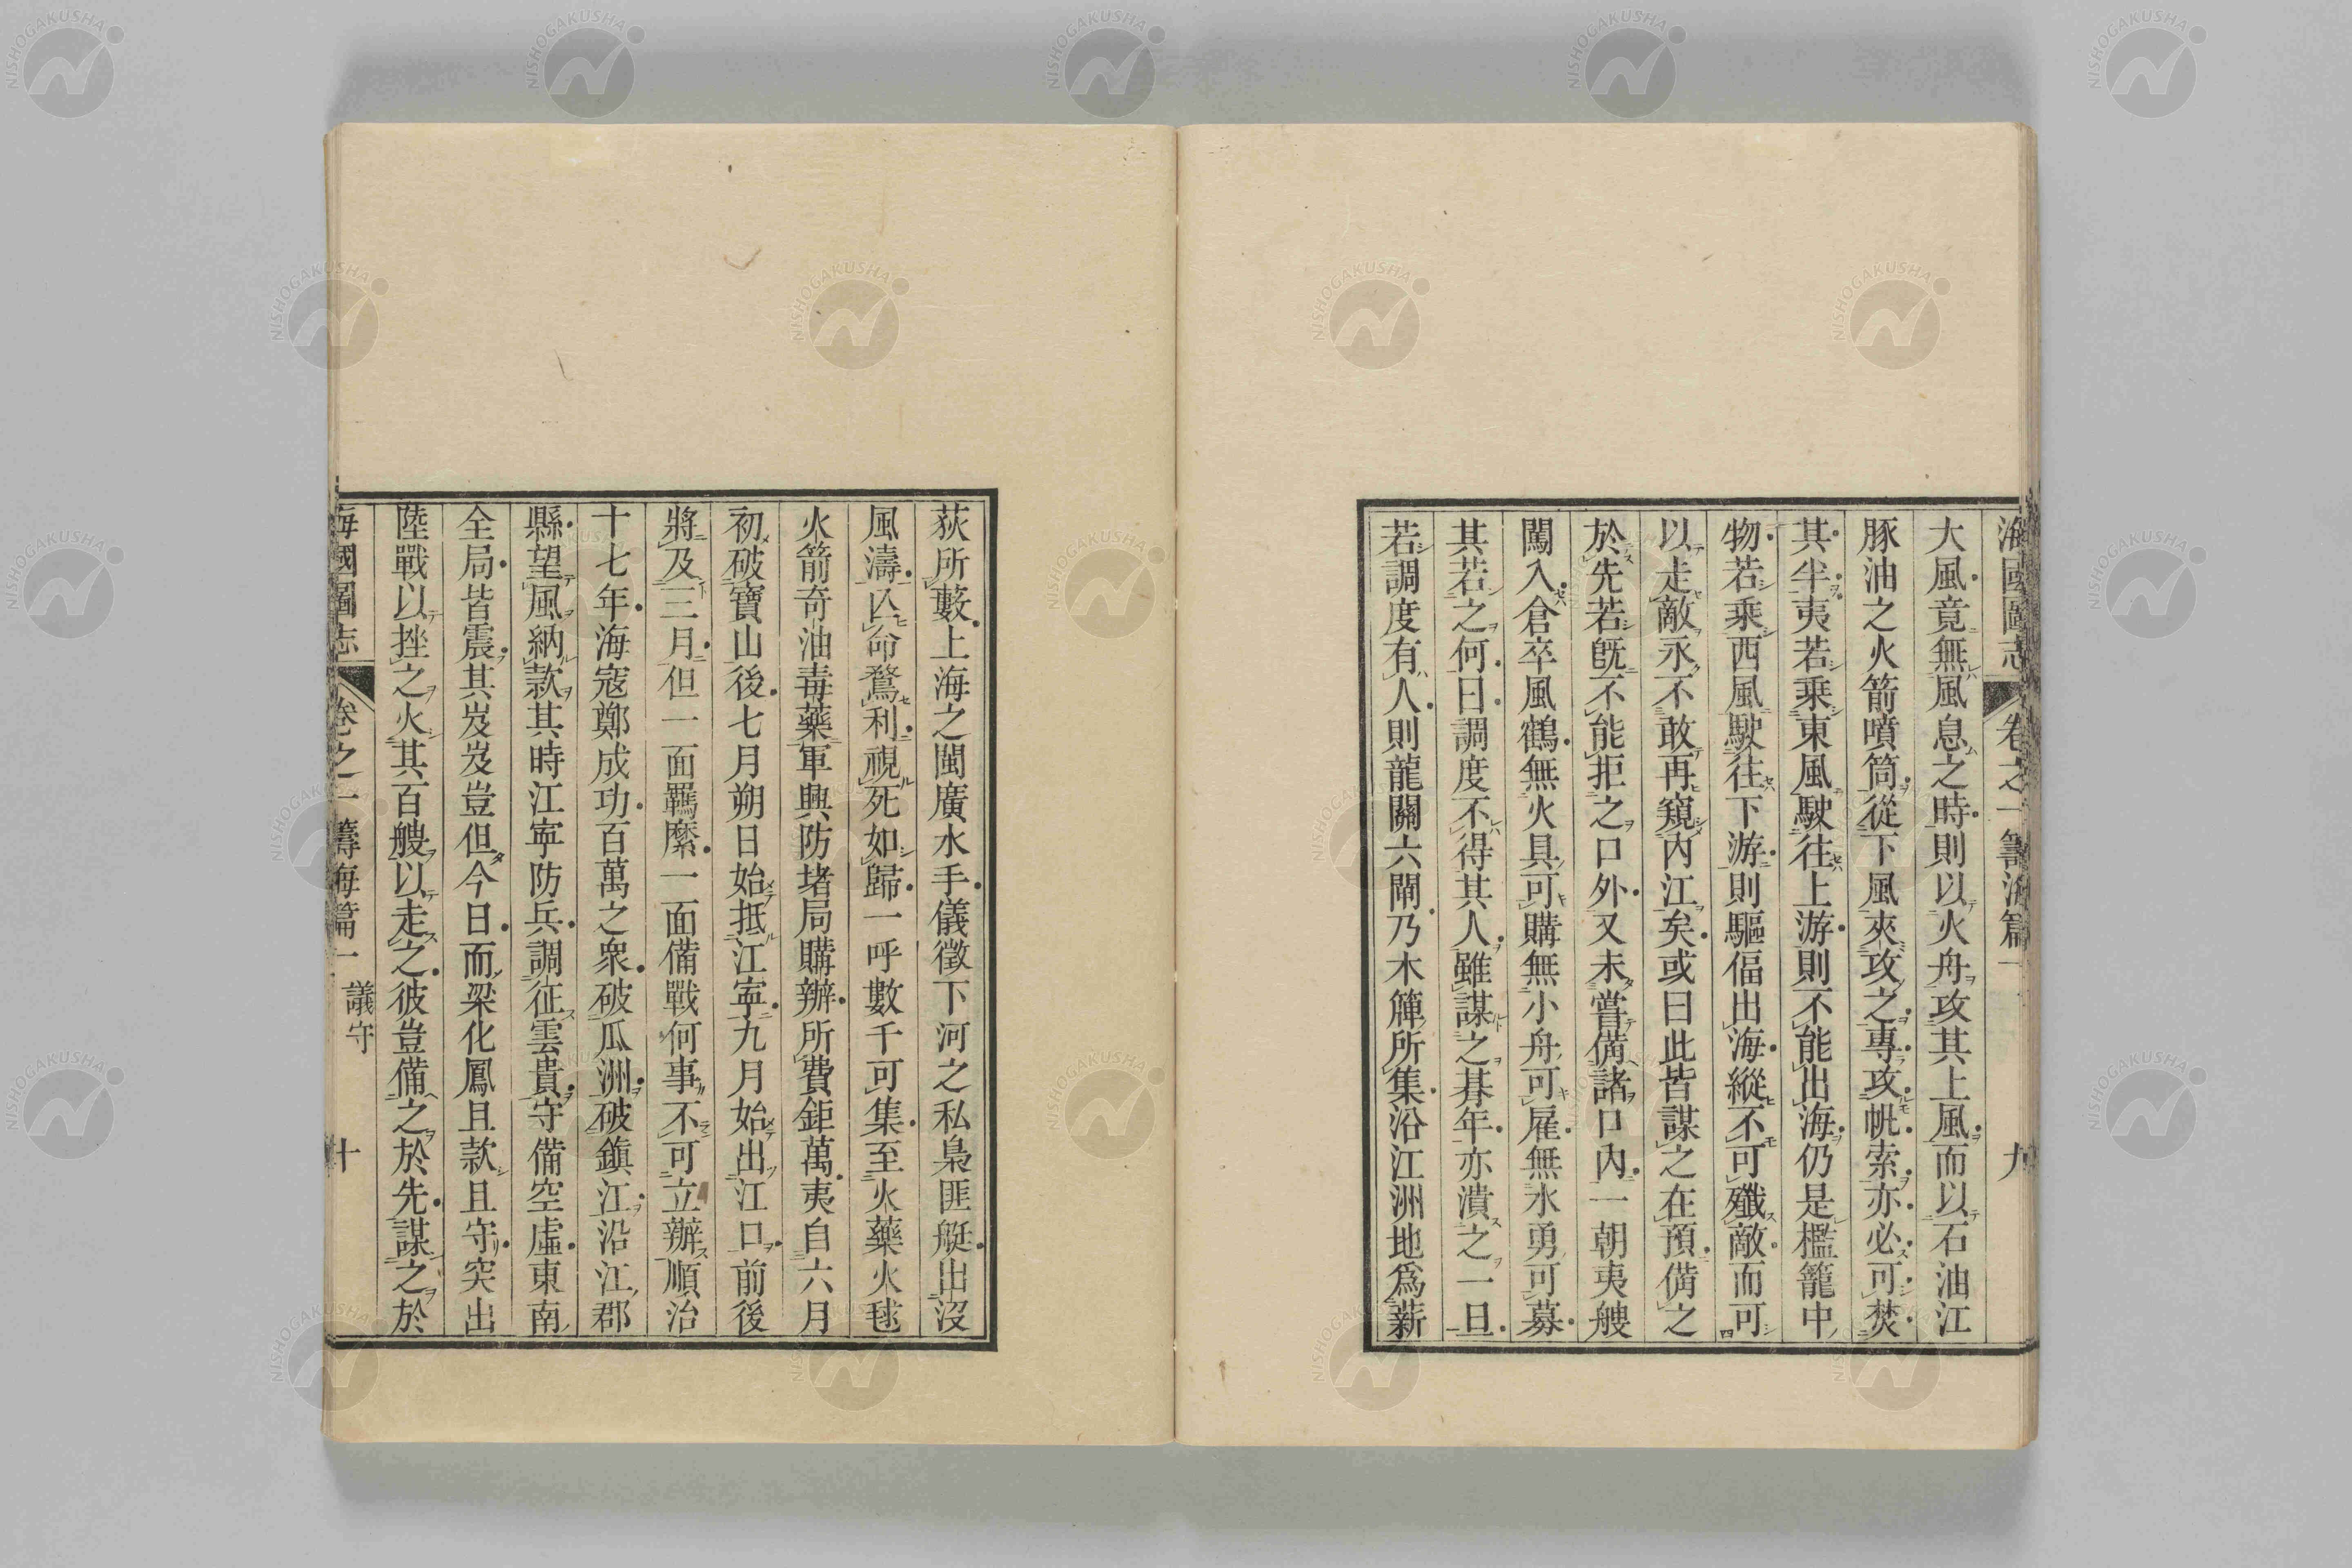 海國圖志 卷之一 籌海篇一 九
大風竟無風息之時則以火舟攻其上風而以石油江
豚油之火箭噴筒從下風來攻之專攻帆索亦必可焚
其半夷若乘東風駛往上游則不能出海仍是檻籠中
物若乘西風駛往下游則驅偪出海縱不可殲敵而可
以走敵永不敢再窺內江矣或曰此皆謀之在預備之
於先若旣不能拒之口外又未嘗備諸口內一朝夷艘
闖入倉卒風鶴無火具可購無小舟可雇無水勇可募
其若之何曰調度不得其人雖謀之朞年亦潰之一旦
若調度有人則龍關六閘乃木簰所集沿江洲地爲薪
荻所藪上海之閩廣水手儀徵下河之私梟匪艇出沒
風濤亾命騖利視死如歸一呼數千可集至火藥火毬
火箭奇油毒藥軍興防堵局購辦所費鉅萬夷自六月
初破寶山後七月朔日始抵江寧九月始出江口前後
將及三月但一面羈縻一面備戰何事不可立辦順治
十七年海寇鄭成功百萬之衆破瓜洲破鎭江沿江郡
縣望風納款其時江寧防兵調征雲貴守備空虛東南
全局皆震其岌岌豈但今日而梁化鳳且款且守突出
陸戰以挫之火其百艘以走之彼豈備之於先謀之於
海國圖志 卷之一 籌海篇一 議守 十
NISHOGAKUSHA